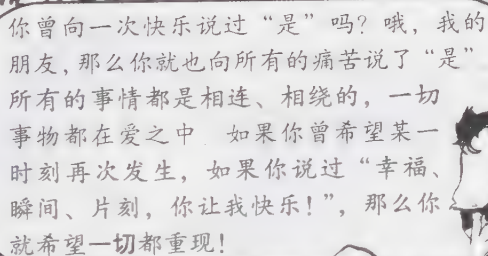 你曾向一次快乐说过“是”吗？哦，我的
朋友，那么你就也向所有的痛苦说了“是”
所有的事情都是相连、相绕的，一切
事物都在爱之中 如果你曾希望某一
时刻再次发生，如果你说过“幸福、
瞬间、片刻，你让我快乐！”，那么你
就希望一切都重现！